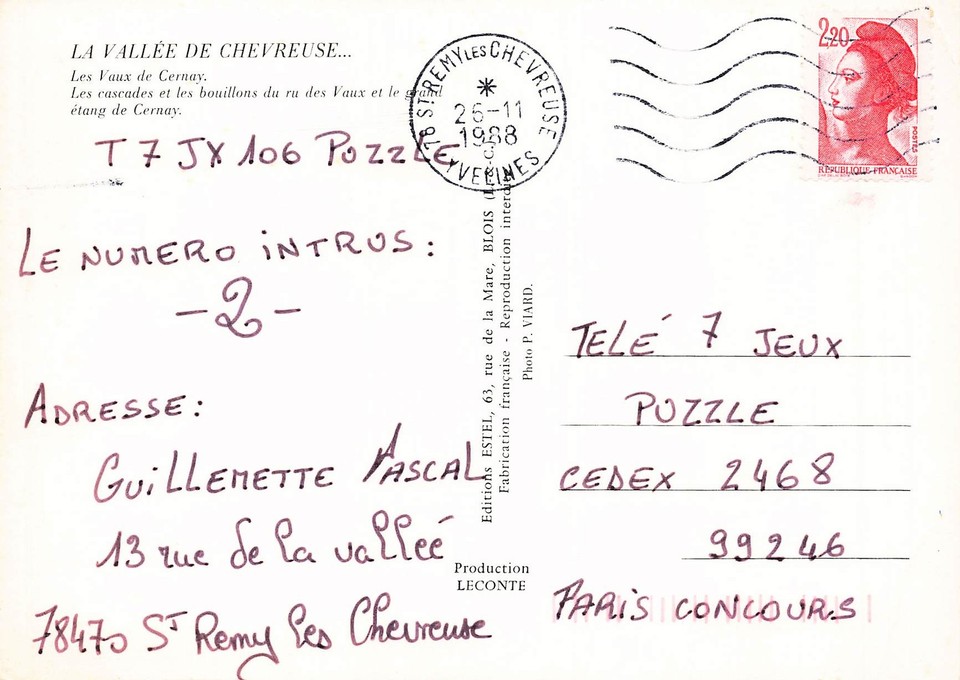 LA VALLÉE DE CHEVREUSE...
Les Vaux de Cernay.
Les cascades et les bouillons du ru des Vaux et le grand
étang de Cernay.
T 7 JX 106 PUZZLE
LE NUMERO iNTRUS :
- 2 -
ADRESSE :
GUiLLEMETTE PASCAL
13 rue de la vallée
78470 ST Remy les Chevreuse
78 ST REMY LES CHEVREUSE
26-11
1988
YVELINES
2,20
POSTES
RÉPUBLIQUE FRANÇAISE
Editions ESTEL, 63, rue de la Mare, BLOIS
Fabrication française - Reproduction interdite
Photo P. VIARD.
Production
LECONTE
TELÉ 7 JEUX
PUZZLE
CEDEX 2468
99246
PARIS CONCOURS